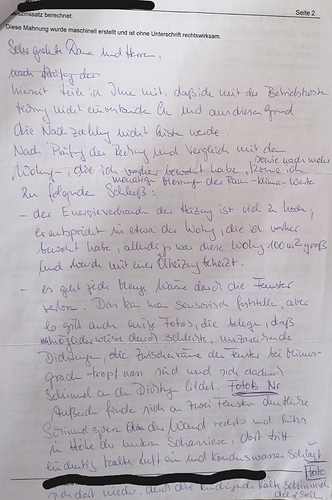 zinssatz berechnet.
Seite 2
Diese Mahnung wurde maschinell erstellt und ist ohne Unterschrift rechtswirksam.
Sehr geehrte Damen und Herren,
nach Prüfung der
hiermit teile ich Ihnen mit, daß ich mit der Betriebskosten
nicht einverstanden bin und aus diesem Grund
die Nachzahlung nicht leisten werde.
Nach Prüfung der Rechnung und Vergleich mit den
sowie nach mehr
Wohng, die ich vorher bewohnt habe, komme ich
monatiger Messung der Raum-klima-Werte
zu folgendem Schluß:
- der Energieverbrauch der Heizung ist viel zu hoch,
er entspricht in etwa der Wohng, die ich vorher
bewohnt habe, allerdings war diese Wohng 100 m² groß
und wurde mit einer Ölheizung beheizt.
- es geht jede Menge Wärme durch die Fenster
verloren. Das kann man sensorisch feststellen, aber
es gibt auch einige Fotos, die belegen, daß
durch schlechte, unzureichende
Dichtungen, die Zwischenräume der Fenster bei Minus-
graden tropfnass sind und sich dadurch
Schimmel an den Dichtgen bildet. Fotos Nr
Außerdem finden sich an zwei Fenstern deutliche
Schimmelspuren an der Wand rechts und links
in Höhe der unteren Scharniere, dort tritt
eindeutig kalte Luft ein und Kondenswasser schlägt
Foto
sich dort nieder,